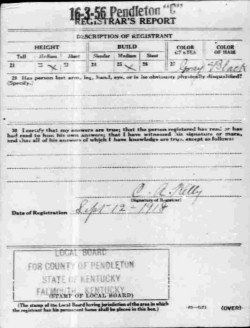 16-3-56 Pendleton C
REGISTRAR'S REPORT
DESCRIPTION OF REGISTRANT
HEIGHT BUILD COLOR OF EYES COLOR OF HAIR
Tall Medium Short Slender Medium Stout
21 22 x 23 24 25 x 26 27 Gray 28 Black
29 Has person lost arm, leg, hand, eye, or is he obviously physically disqualified?
(Specify.)
30 I certify that my answers are true; that the person registered has read or has
had read to him his own answers; that I have witnessed his signature or mark,
and that all of his answers of which I have knowledge are true, except as follows:
C. A. Kelly
(Signature of Registrar)
Date of Registration Sept-12-1918
LOCAL BOARD
FOR COUNTY OF PENDLETON
STATE OF KENTUCKY
FALMOUTH, KENTUCKY
(STAMP OF LOCAL BOARD)
(The stamp of the Local Board having jurisdiction of the area in which
the registrant has his permanent home shall be placed in this box.)
(OVER)